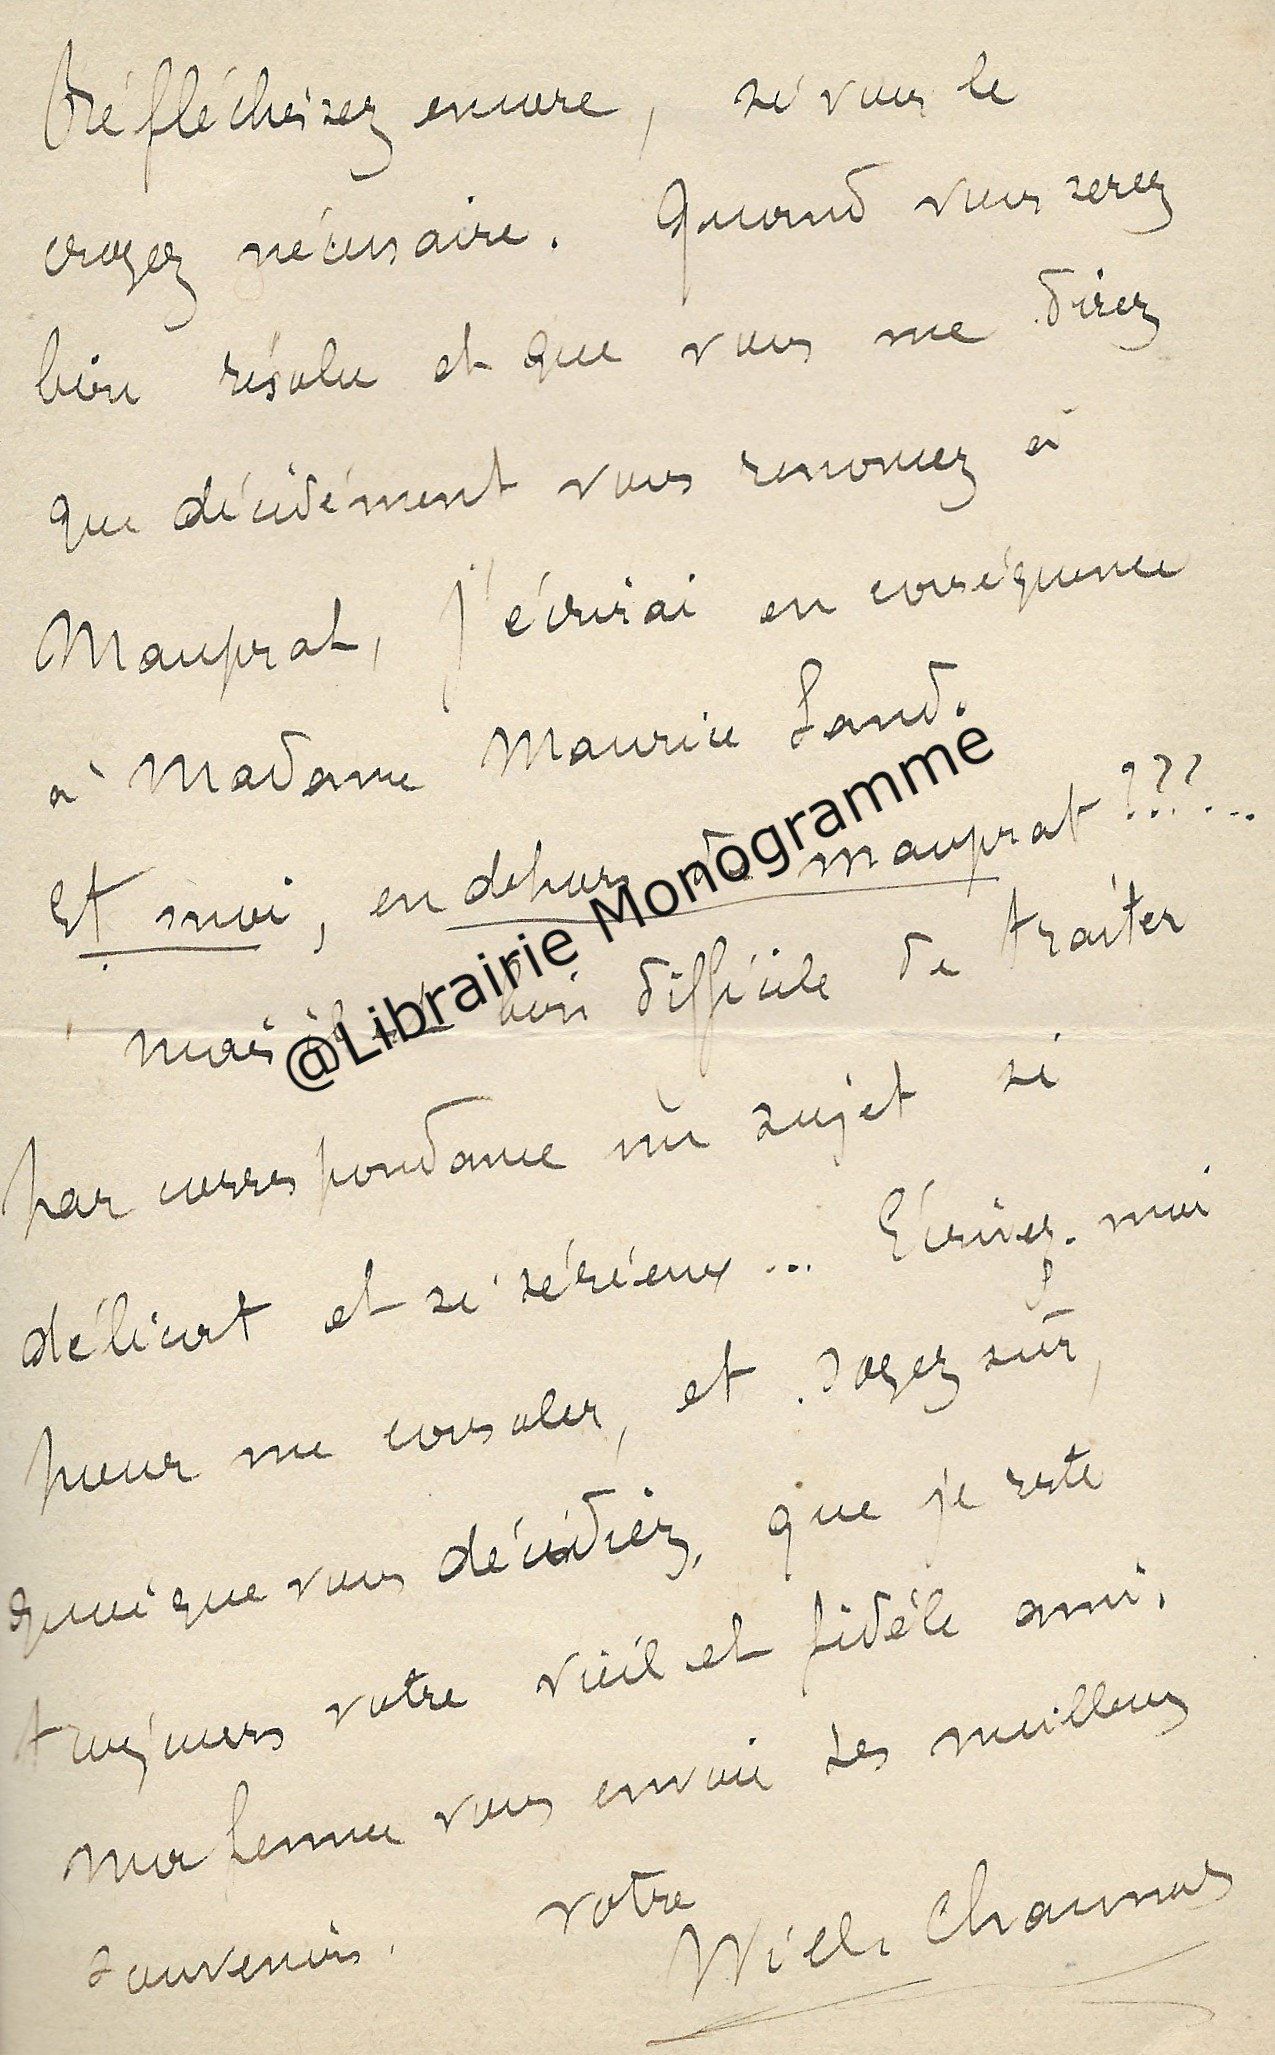 Réfléchissez encore, si vous le
croyez nécessaire. Quand vous serez
bien résolu et que vous me direz
que décidément vous renoncez à
Mauprat, j'écrirai en conséquence
à Madame Maurice Sand.
Et moi, en dehors de Mauprat ???...
mais il est bien difficile de traiter
par correspondance un sujet si
délicat et si sérieux... Ecrivez-moi
pour me consoler, et soyez sûr,
quoique vous décidiez, que je reste
toujours votre vieil et fidèle ami.
Ma femme vous envoie ses meilleurs
souvenirs. votre
Will. Chaumet
@Librairie Monogramme